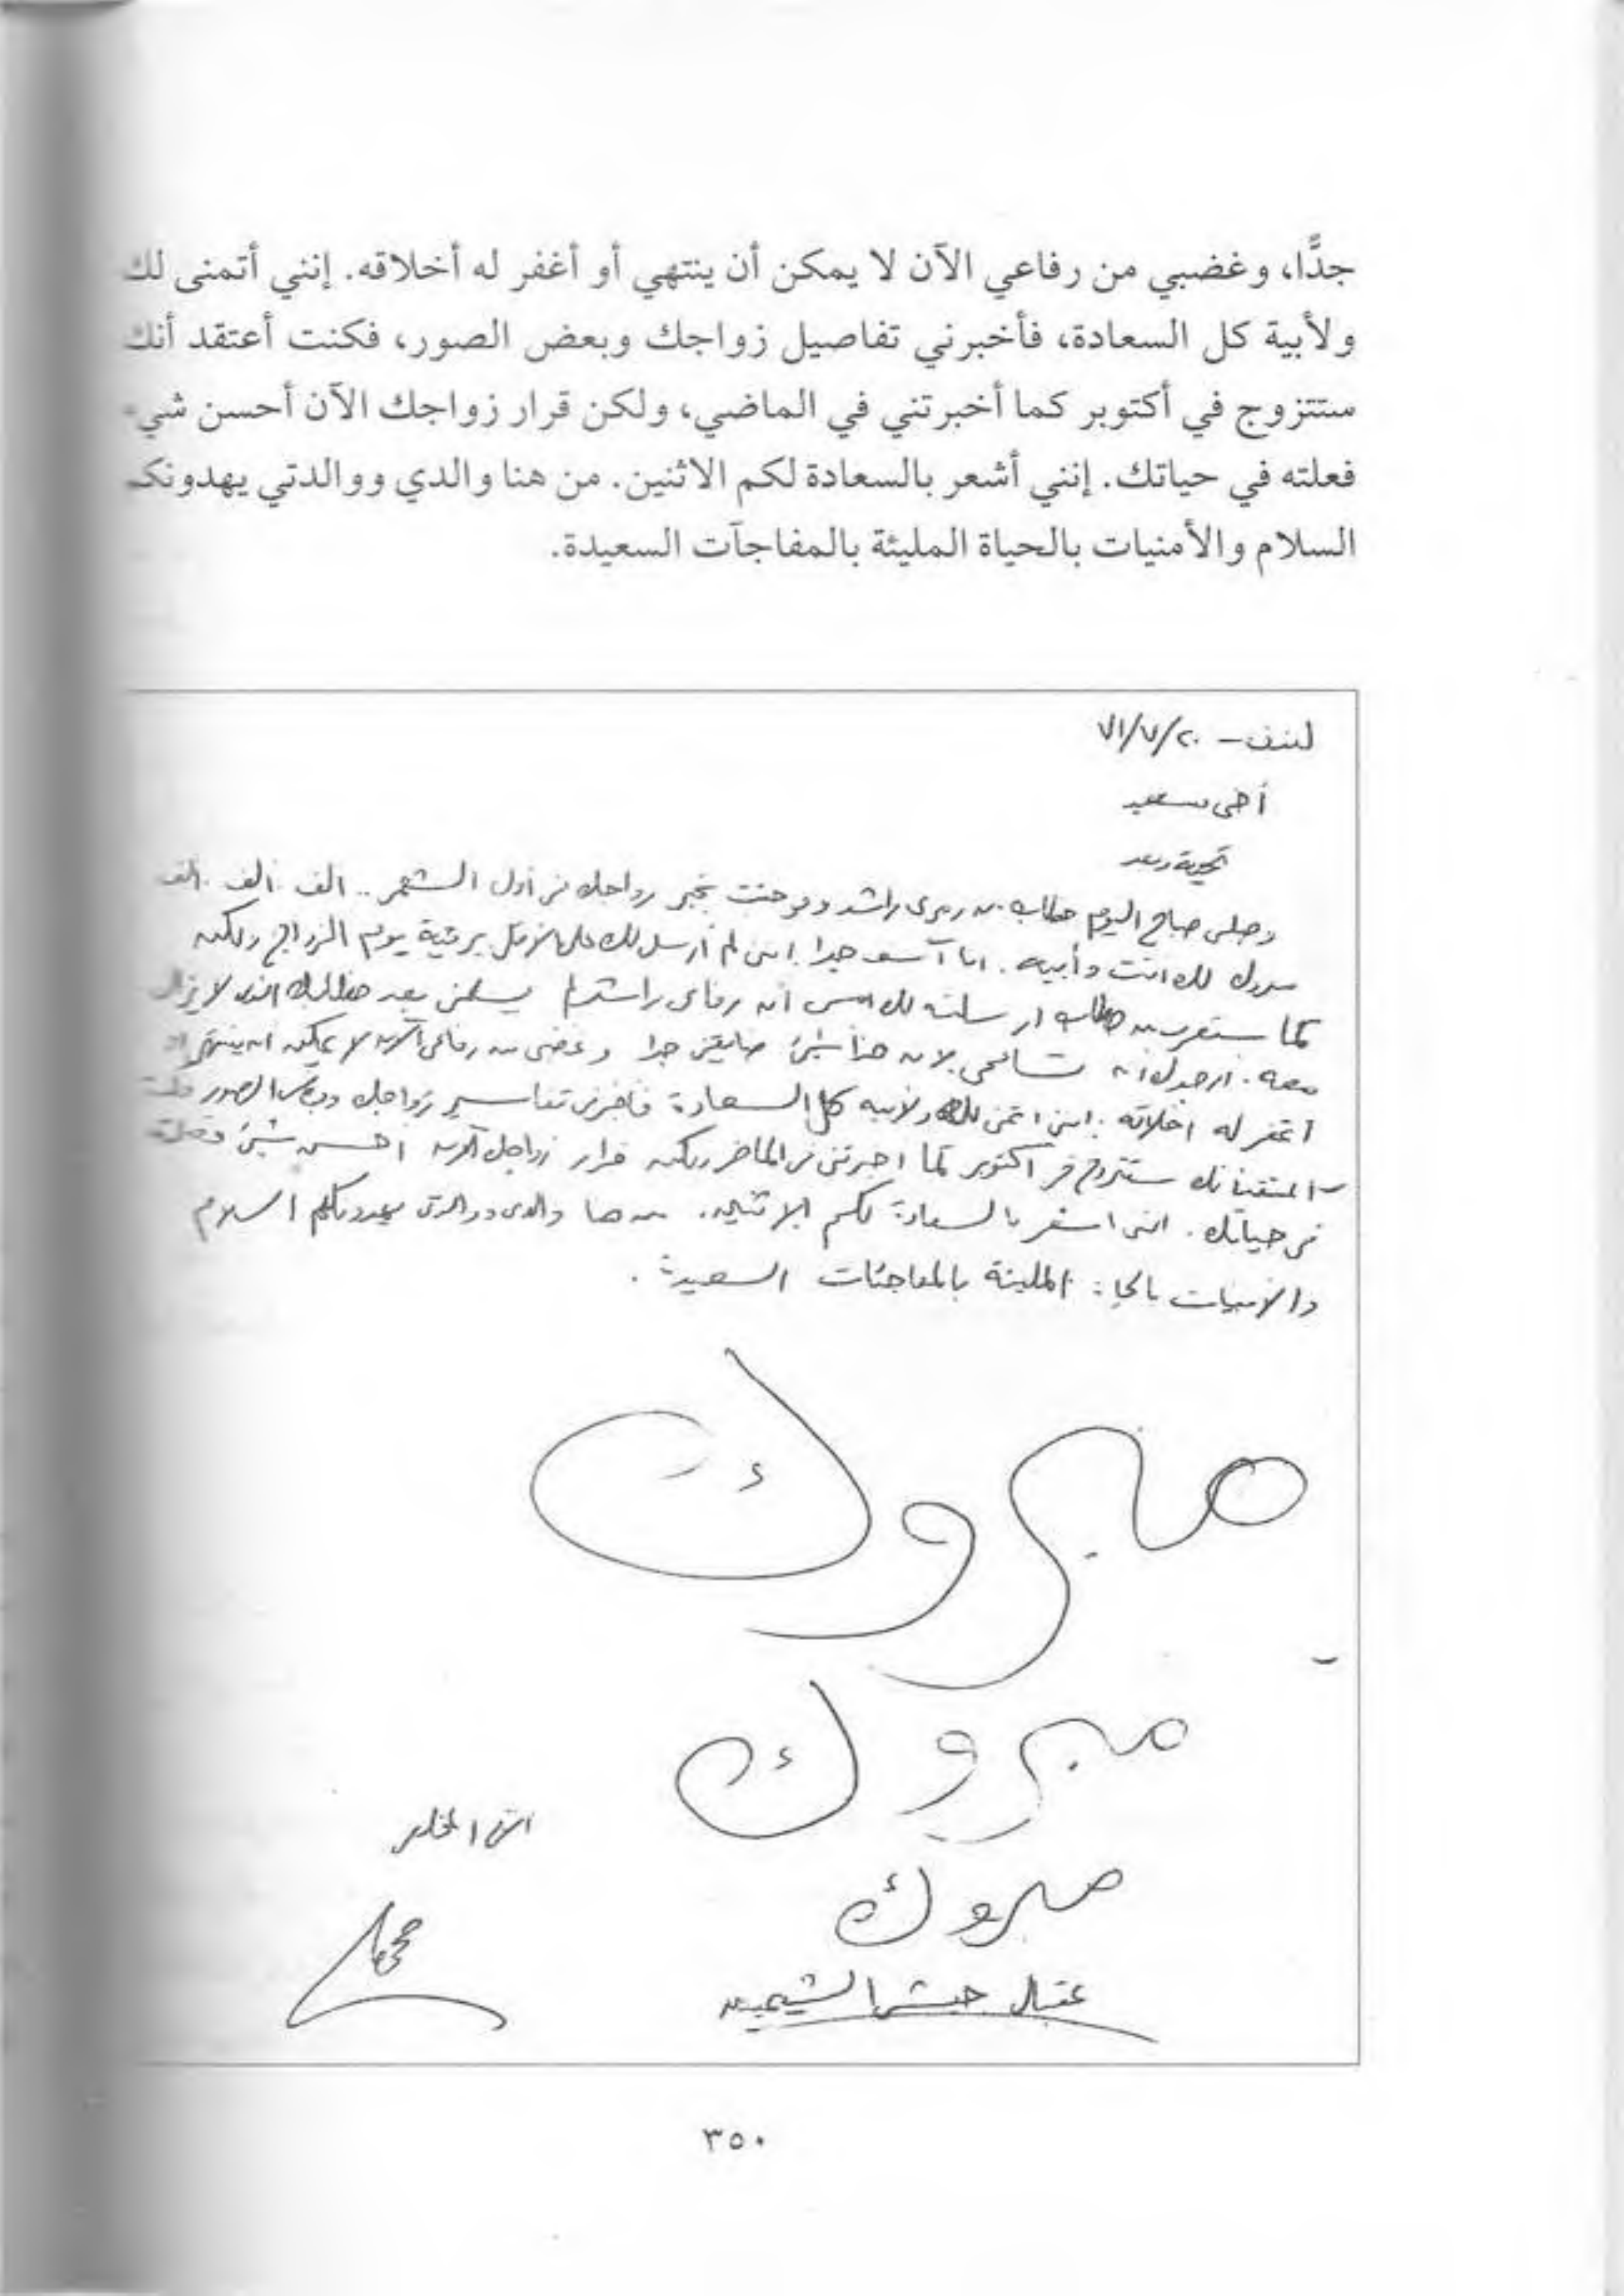 جدًّا، وغضبي من رفاعي الآن لا يمكن أن ينتهي أو أغفر له أخلاقه. إنني أتمنى لك
ولأبية كل السعادة، فأخبرني تفاصيل زواجك وبعض الصور، فكنت أعتقد أنك
ستتزوج في أكتوبر كما أخبرتني في الماضي، ولكن قرار زواجك الآن أحسن شيء
فعلته في حياتك. إنني أشعر بالسعادة لكم الاثنين. من هنا والدي ووالدتي يهدونكم
السلام والأمنيات بالحياة المليئة بالمفاجآت السعيدة.
٧١/٧/٢٠ –
أخى سعيد
تحية وبعد
وصلنى صباح اليوم خطاب من راشد وفوجئت بخبر زواجك فى أول الشهر .. الف الف الف
مبروك لك انت وأبيه . انا آسف جدا اننى لم أرسل لك على الأقل برقية يوم الزواج ولكن
كما ستعرف من خطاب ارسلته لك امس أن رفاعى راشد لم يسلمنى بعد خطابك الذى لا يزال
معه . ارجوك ان تسامحنى لان هذا شئ ضايقنى جدا وغضبى من رفاعى الآن لا يمكن ان ينتهى او
أغفر له اخلاقه . اننى اتمنى لك ولأبيه كل السعادة فأخبرنى تفاصيل زواجك وبعض الصور فكنت
اعتقد انك ستتزوج فى اكتوبر كما اخبرتنى فى الماضى ولكن قرار زواجك الآن احسن شئ فعلته
فى حياتك . اننى اشعر بالسعادة لكم الاثنين . من هنا والدى ووالدتى يهدونكم السلام
والأمنيات بالحياة المليئة بالمفاجئات السعيدة .
مبروك
مبروك
مبروك
عقبال
٣٥٠